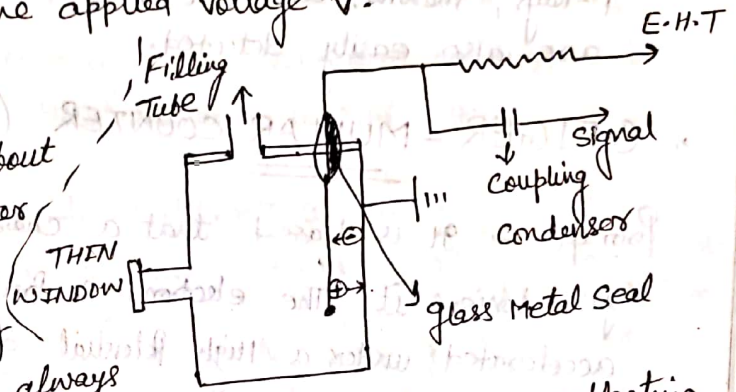 he applied voltage V.
E.H.T
Filling
Tube
Signal
bout
Coupling
Condensor
THIN
WINDOW
glass Metal Seal
always